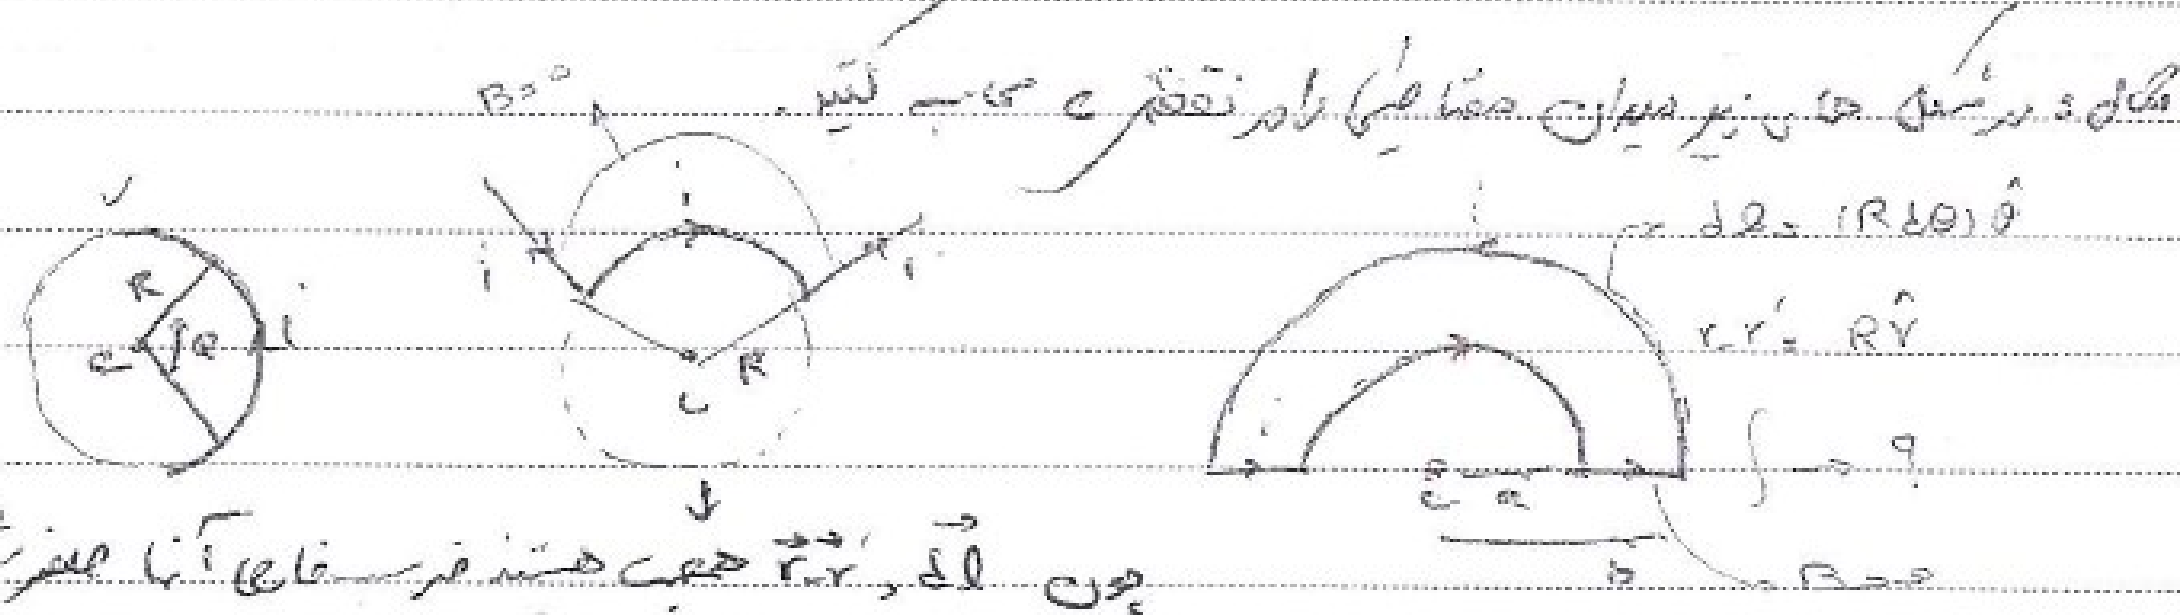 مثال: در شکل های زیر میدان مغناطیسی را در نقطه c حساب کنید.
B=0
i
i
i
R
c
R
θ
i
c
i
dl = (R dθ) θ̂
r-r' = R r̂
i
c a
b
B=0
∫ → θ
چون dl و r-r' هم جهت هستند ضرب خارجی آنها صفر